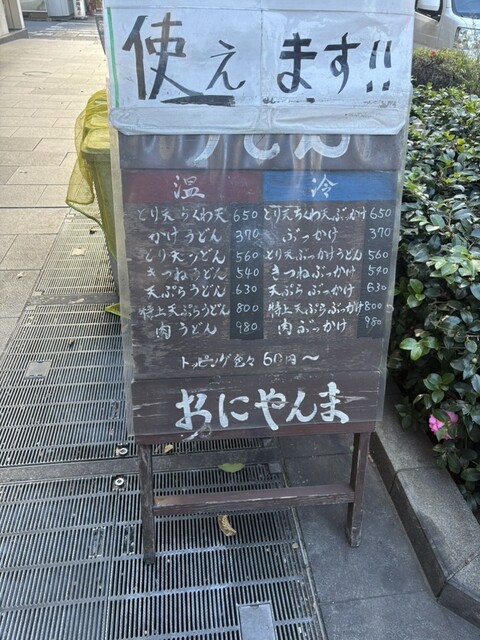 使えます!!
うどん
温 冷
とり天ちくわ天 650 とり天ちくわ天ぶっかけ 650
かけうどん 370 ぶっかけ 370
とり天うどん 560 とり天ぶっかけうどん 560
きつねうどん 540 きつねぶっかけ 540
天ぷらうどん 630 天ぷらぶっかけ 630
特上天ぷらうどん 800 特上天ぷらぶっかけ 800
肉うどん 980 肉ぶっかけ 980
トッピング色々 60円〜
おにやんま